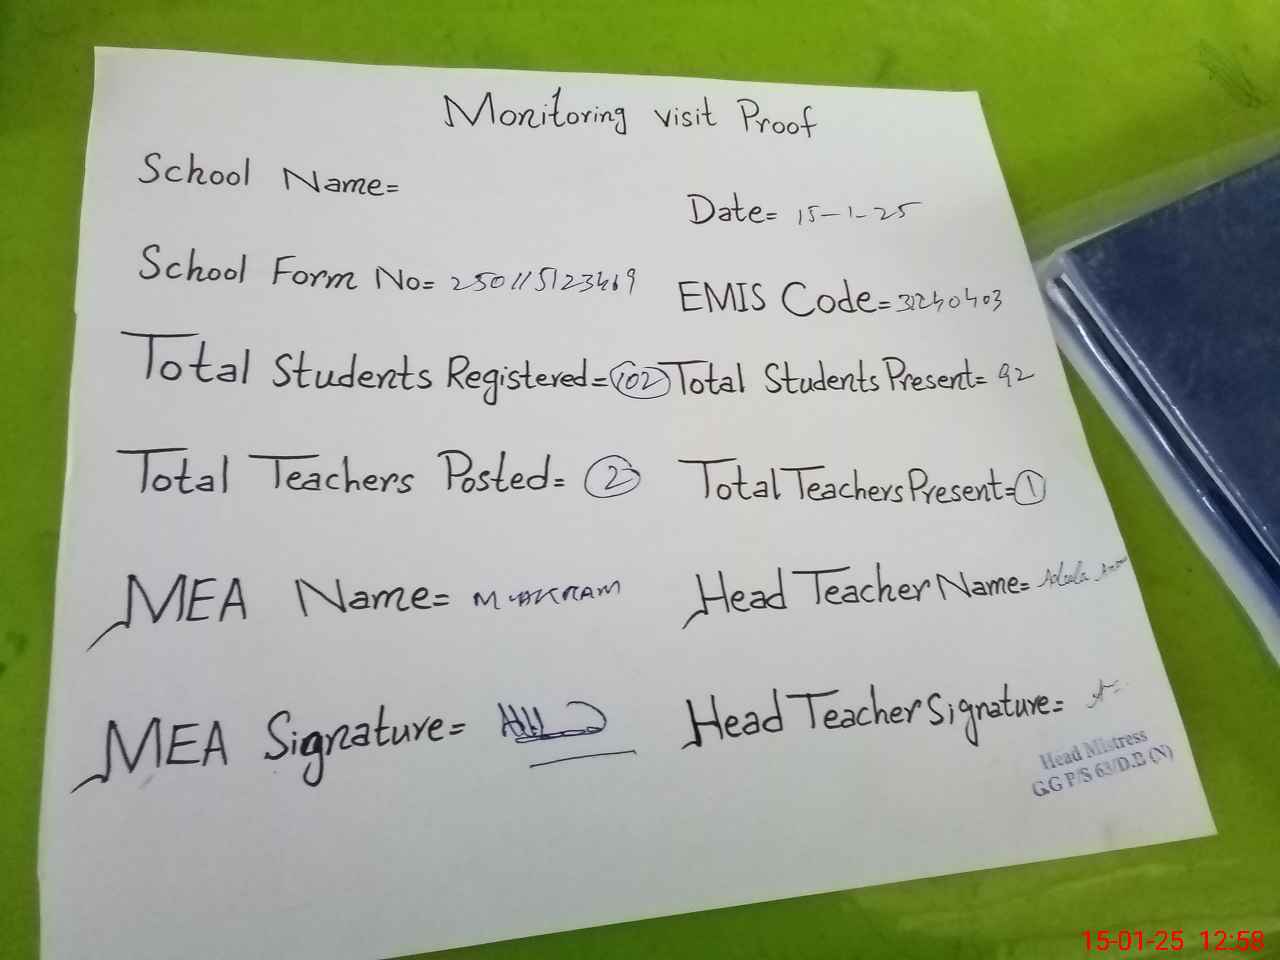 Monitoring visit Proof
School Name=
Date= 15-1-25
School Form No= 250115123469
EMIS Code= 31240403
Total Students Registered= 102 Total Students Present= 92
Total Teachers Posted= 2 Total Teachers Present= 1
MEA Name= M AKRAM Head Teacher Name=
MEA Signature= Head Teacher Signature=
Head Mistress
G.G P/S 63/D.B (N)
15-01-25 12:58